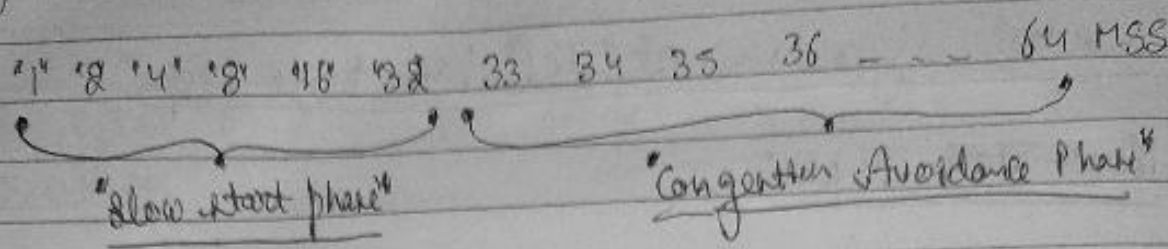 "1" "2" "4" "8" "16" "32 33 34 35 36 - - - 64 MSS
"Slow start phase" "Congestion Avoidance Phase"